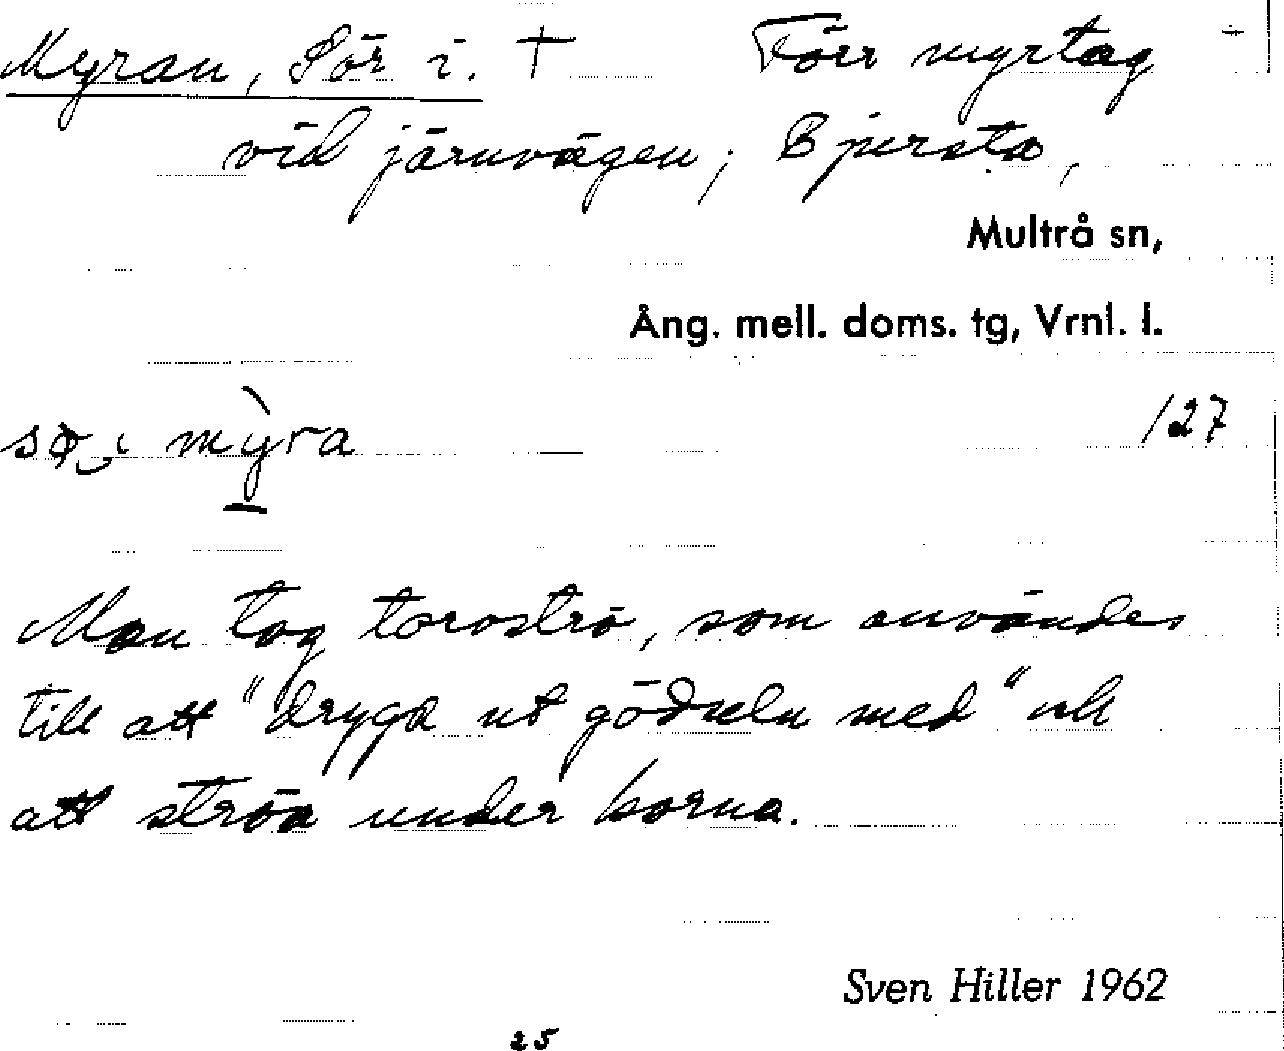 Myran, Sör i. † Förr myrtag
vid järnvägen; Bjersta,
Multrå sn,
Ång. mell. doms. tg, Vrnl. l.
sø̱ i mỳra /27
Man tog torvströ, som användes
till att "dryga ut gödseln med" och
att ströa under korna.
Sven Hiller 1962
25